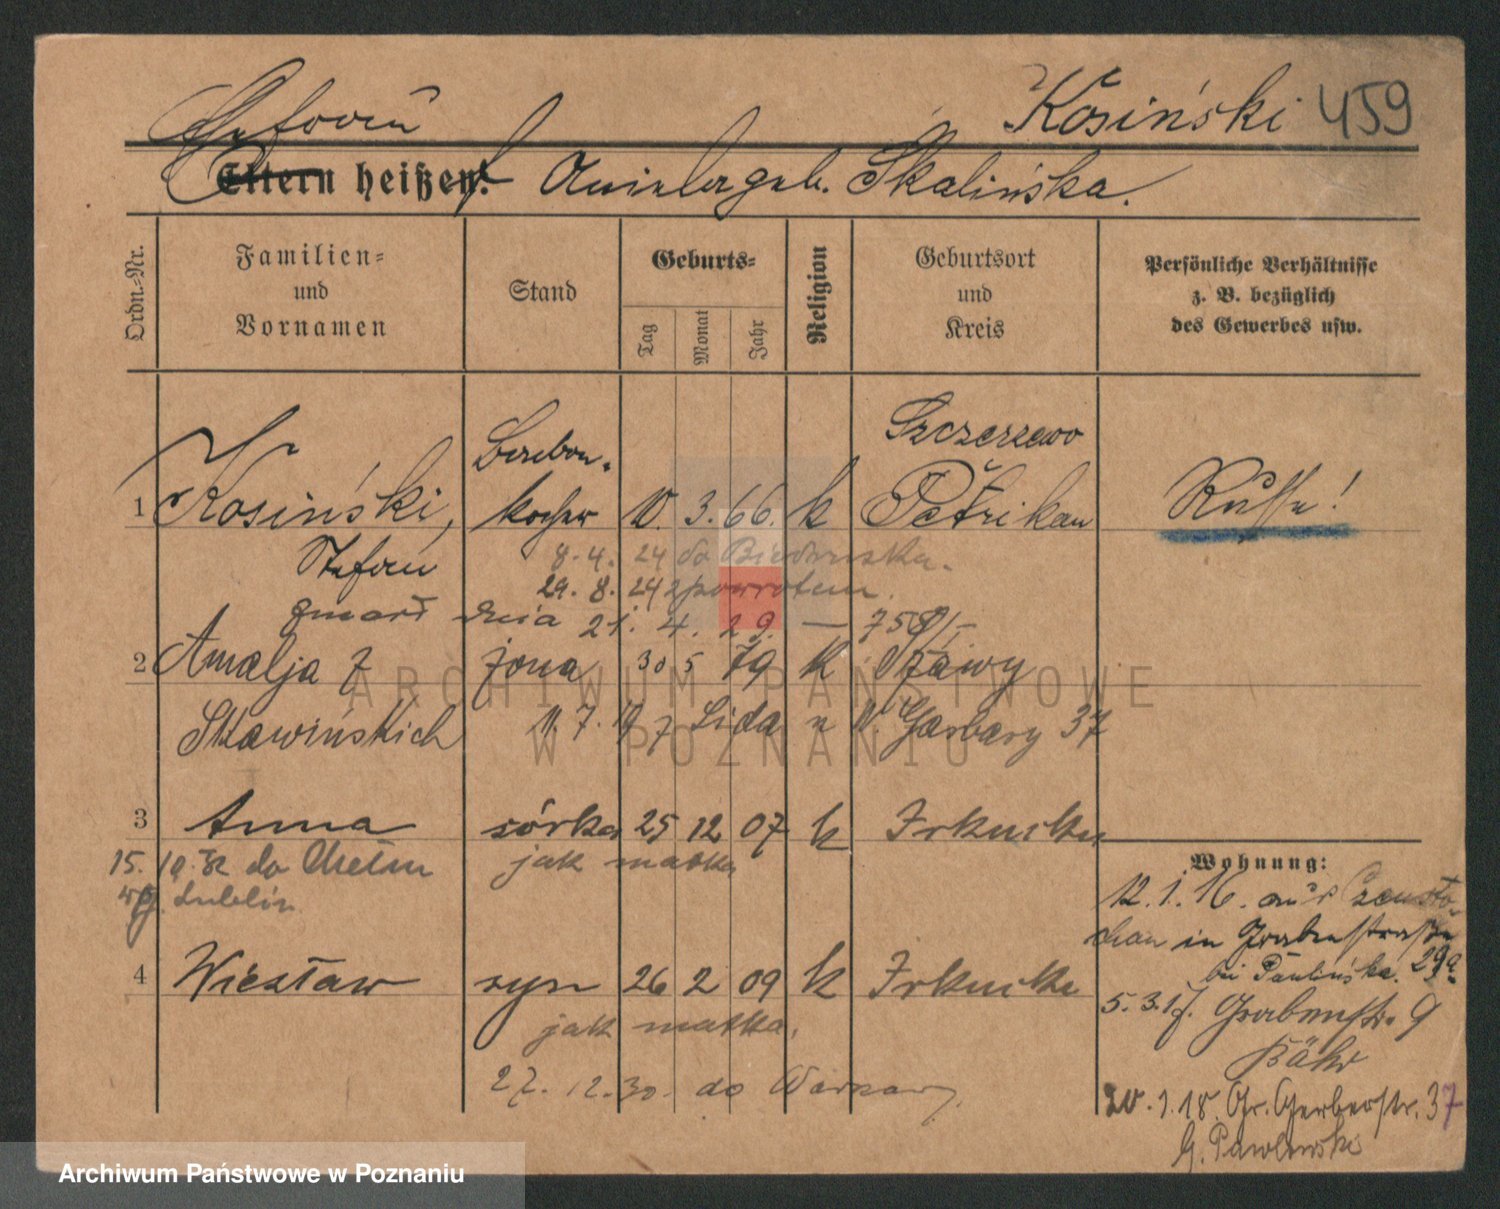 Kosiński 459
Stefan
Eltern heißen: geb. Skalińska.
Ordn.-Nr.
Familien-
und
Vornamen
Stand
Geburts-
Tag
Monat
Jahr
Religion
Geburtsort
und
Kreis
Persönliche Verhältnisse
z. B. bezüglich
des Gewerbes usw.
1 Kosiński, Bonbon- kocher 10. 3. 66. k Szczerzewo Petrikau Russe!
Stefan 8. 4. 24 do Biedruska.
29. 8. 24 z powrotem.
zmarł dnia 21. 4. 29. — 758/-
2 Amalja z żona 30 5 79 k
Skawińskich 11. 7. 19 z Lida n W. Garbary 37
3 Anna córka 25 12 07 k Irkucku
jak matka
15. 10. 32 do Chełm
Lublin
4 Wiesław syn 26 2 09 k Irkucku
jak matka.
27. 12. 30. do Warszawy.
Wohnung:
12. 1. 16. aus Czensto-
chau in Grabenstraße
bei Paulińska. 29a.
5. 3. 17. Grabenstr. 9
Bähr
20. 1. 18. Gr. Gerberstr. 37
G. Pawlowski
ARCHIWUM PAŃSTWOWE
W POZNANIU
Archiwum Państwowe w Poznaniu